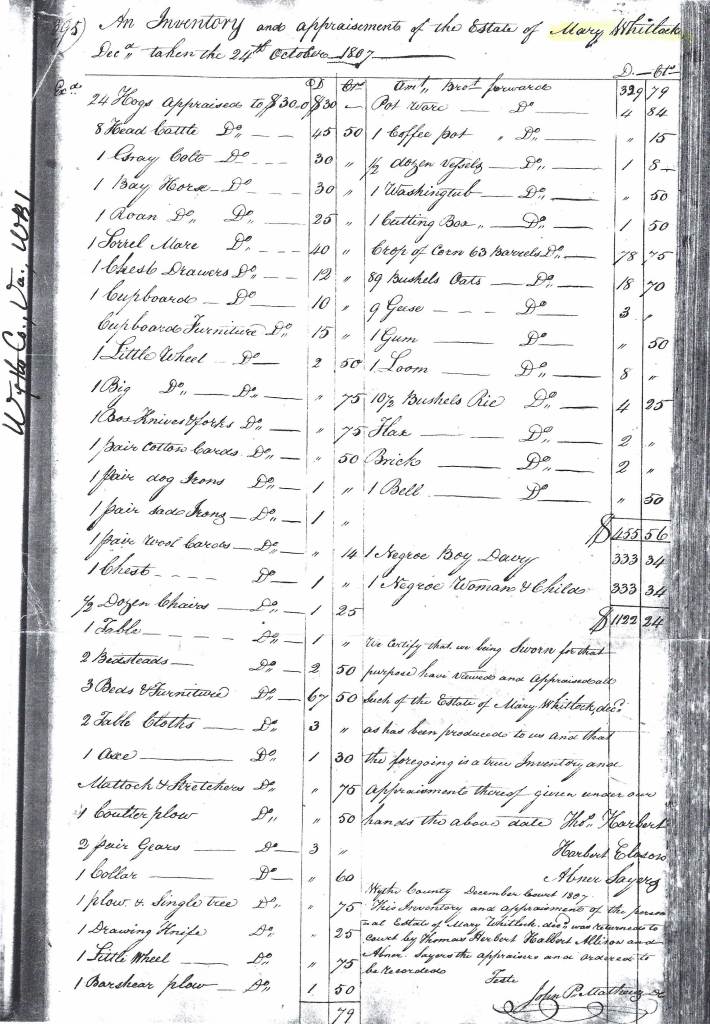 395) An Inventory and appraisement of the Estate of Mary Whitlock
Decd. taken the 24th October 1807
D Cts
24 Hogs appraised to $30.0 $30 —
8 Head Cattle Do — 45 50
1 Gray Colt Do — 30 "
1 Bay Horse — Do — 30 "
1 Roan Do,, Do,, — 25 "
1 Sorrel Mare Do,, — 40 "
1 Chest Drawers Do — 12 "
1 Cupboard — Do — 10 "
Cupboard Furniture Do 15 "
1 Little Wheel — Do — 2 50
1 Big Do,, — Do,, — " 75
1 Box Knives & forks Do — " 75
1 pair Cotton Cards Do,, — " 50
1 pair dog Irons Do — 1 "
1 pair sad Irons — Do,, — 1 "
1 pair Wool Cards — Do,, — " 14
1 Chest - - - - Do — 1 "
1/2 Dozen Chairs — Do,, — 1 25
1 Table — - - - Do,, — 1 "
2 Bedsteads — Do,, — 2 50
3 Beds & Furniture Do — 67 50
2 Table Cloths — Do,, — 3 "
1 Axe — Do,, — 1 30
Mattock & Stretchers Do,, " 75
1 Coulter plow Do,, " 50
2 pair Gears — Do — 3 "
1 Collar — Do — " 60
1 plow & Single tree Do,, " 75
1 Drawing Knife Do,, " 25
1 Little Wheel — Do,, " 75
1 Barshear plow — Do,, 1 50
79
D. — Cts
Amt,, Brot forward 329 79
Pot Ware — Do — 4 84
1 Coffee pot " Do,, — " 15
1/2 dozen Vessels — Do,, — 1 8 —
1 Washingtub — Do,, — " 50
1 Cutting Box,, — Do,, — 1 50
Crop of Corn 63 Barrels Do,, — 78 75
89 Bushels Oats — Do,, — 18 70
9 Geese - - - Do — 3 "
1 Gum — Do — " 50
1 Loom — Do,, — 8 "
10 1/2 Bushels Rie Do,, — 4 25
Flax — Do,, — 2 "
Brick — Do,, — 2 "
1 Bell — Do — " 50
$455 56
1 Negroe Boy Davy 333 34
1 Negroe Woman & Child 333 34
$1122 24
We Certify that we being Sworn for that
purpose have viewed and appraised all
such of the Estate of Mary Whitlock, decd.
as has been produced to us and that
the foregoing is a true Inventory and
appraisments thereof given under our
hands the above date Thos. Harbert
Harbert
Abner Sayers
Wythe County December Court 1807
This Inventory and appraisment of the person
al Estate of Mary Whitlock decd,, was returned to
court by Thomas Herbert Halbert Allison and
Abner Sayers the appraisers and ordered to
be recorded
Teste
John P. Mathews
Wythe Co., Va., WB1